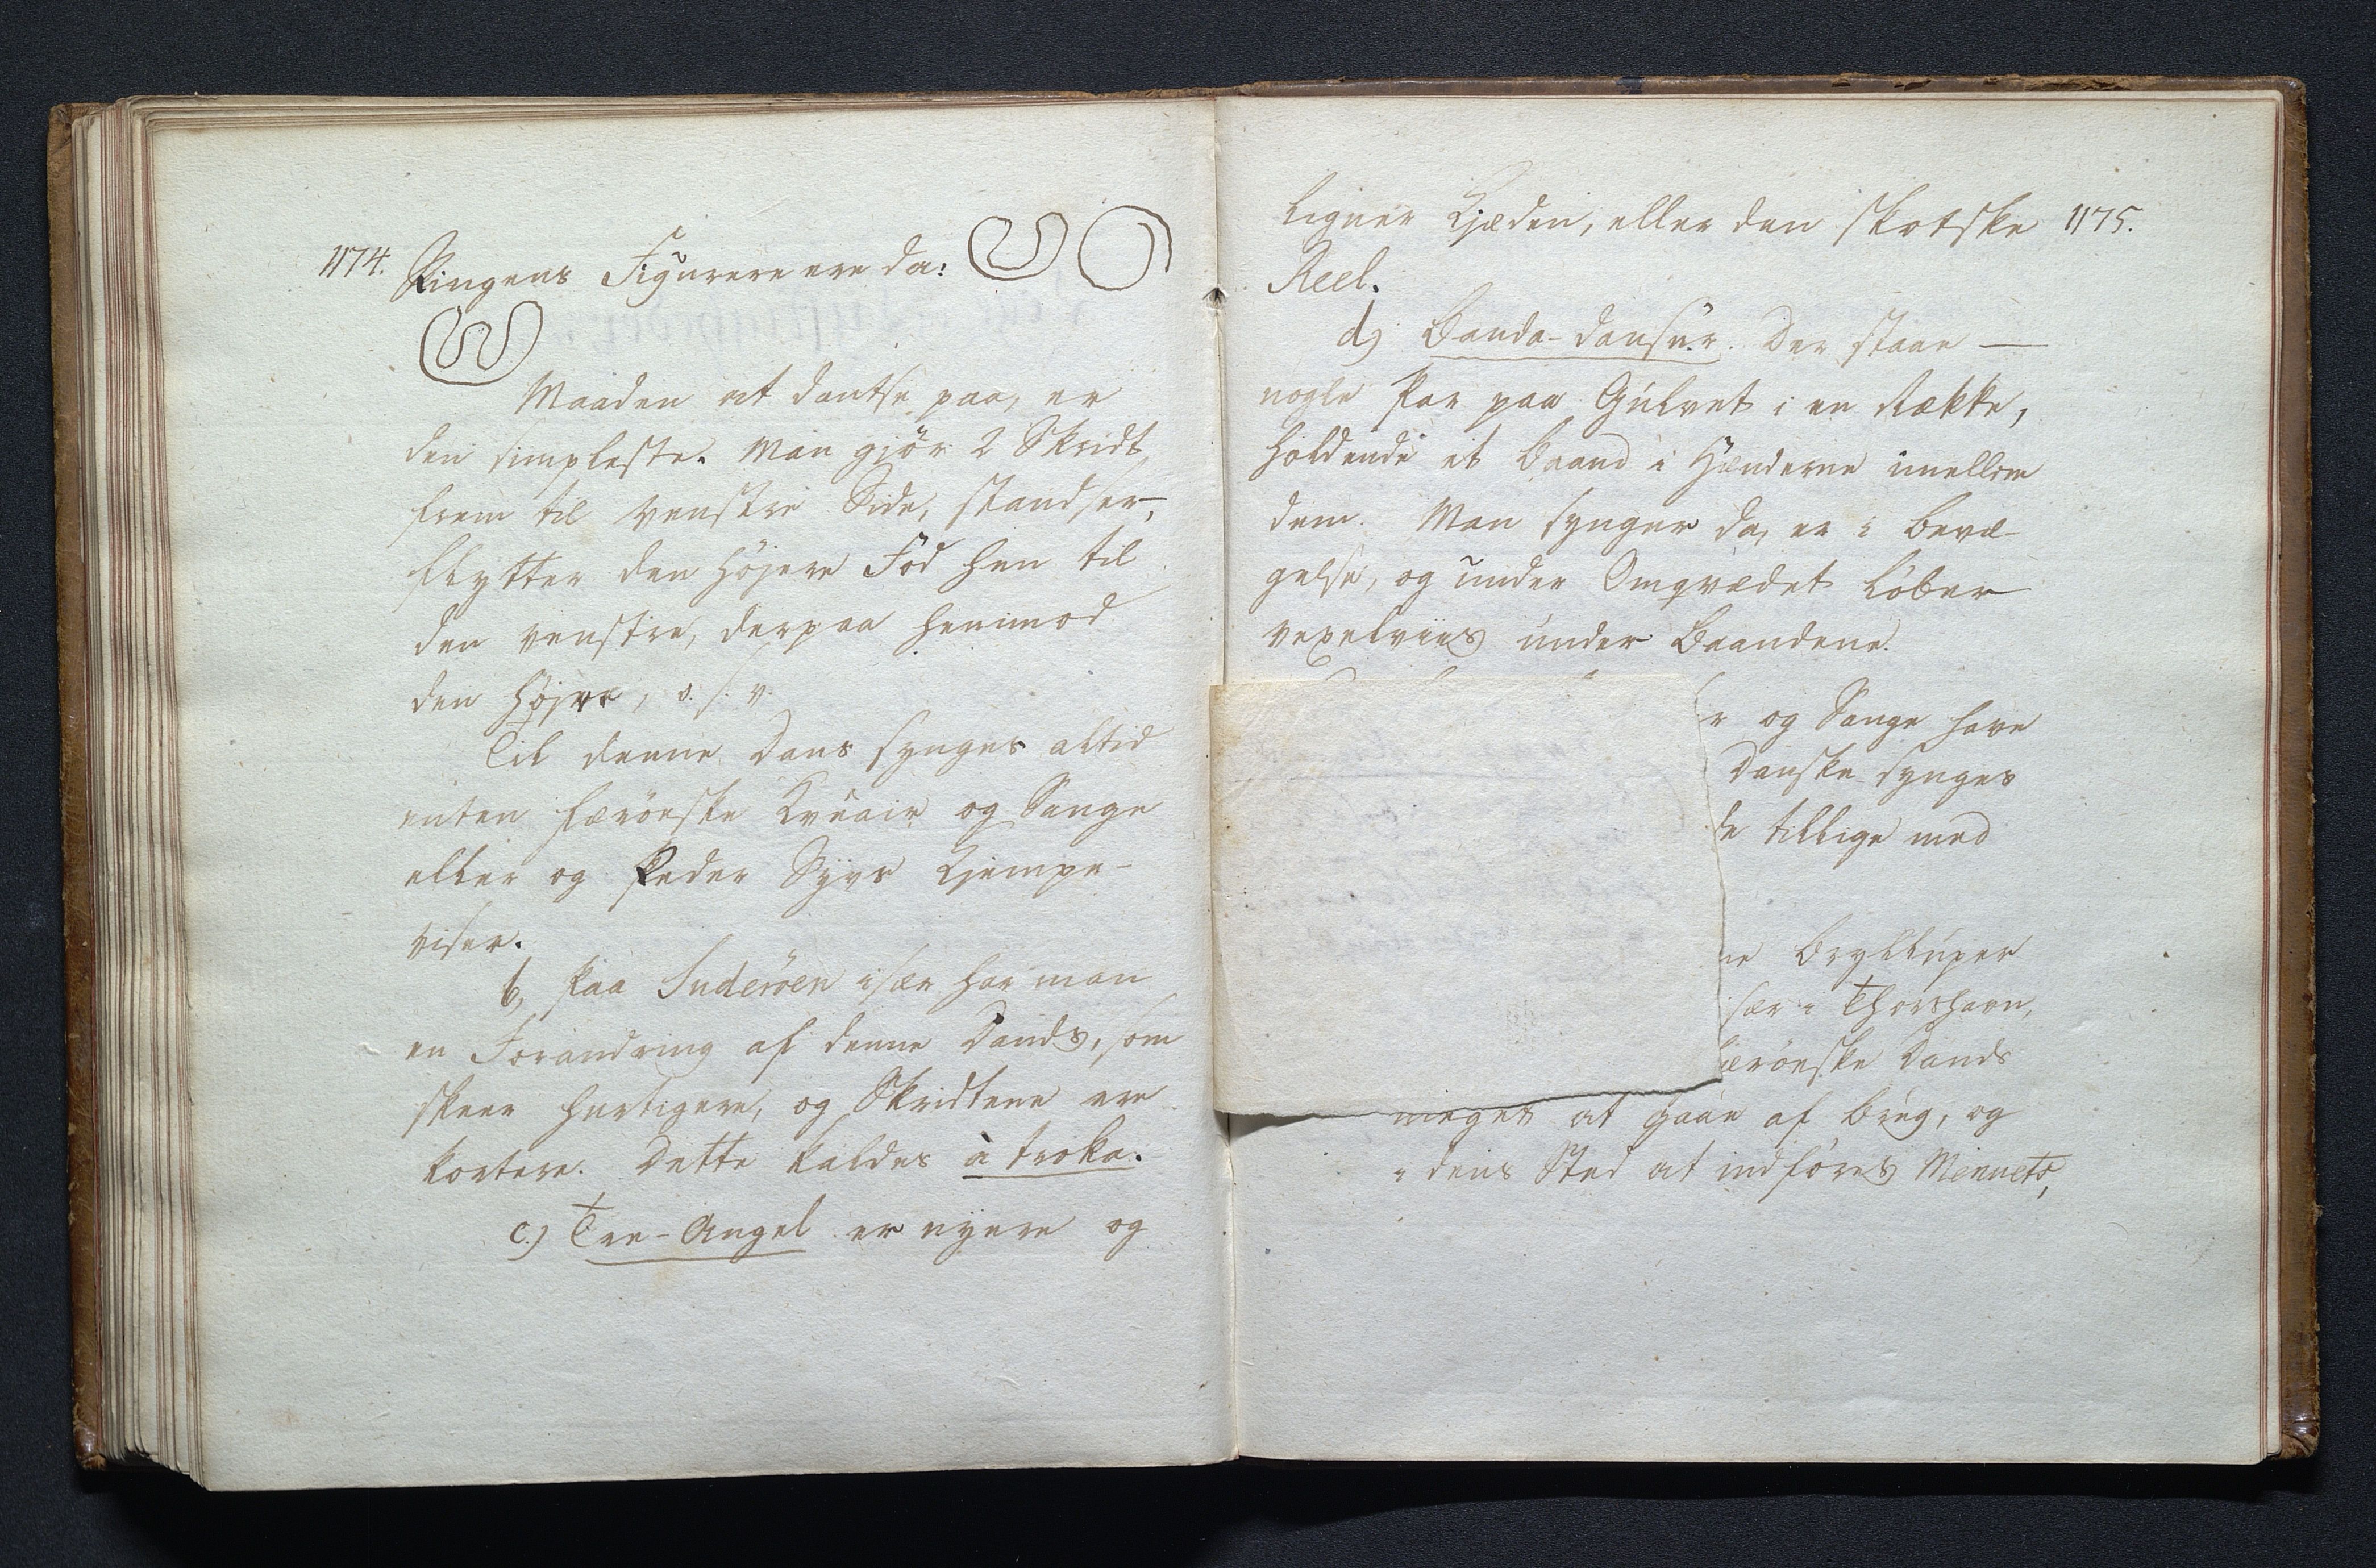 1174.
Ringens Figurere ere da:
Maaden at dantse paa, er
den simpleste. Man gjör 2 Skridt
frem til venstre Side, standser,
flytter den höjere Fod hen til
den venstre, derpaa henimod
den höjre, o. s. v.
Til denne Dans synges altid
enten færöeske Kvæair og Sange
eller og Peder Syvs Kjempe-
viser.
b, Paa Suderöen især har man
en Forandring af denne Dands, som
skeer hurtigere, og Skridtene ere
kortere. Dette kaldes à troka.
c.) Tre-Angel er nyere og
1175.
ligner Kjæden, eller den skotske
Reel.
d) Banda-dansur. Der staae —
nogle Par paa Gulvet i en Række,
holdende et Baand i Hænderne imellem
dem. Man synger da, er i Bevæ-
gelse, og under Omqvædet löber
vexelviis under Baandene.
r og Sange have
Danske synges
de tillige med
ne Bryllupper
sær i Thorshavn,
æröeske Dands
meget at gaae af Brug, og
i dens Sted at indföres Menuets,